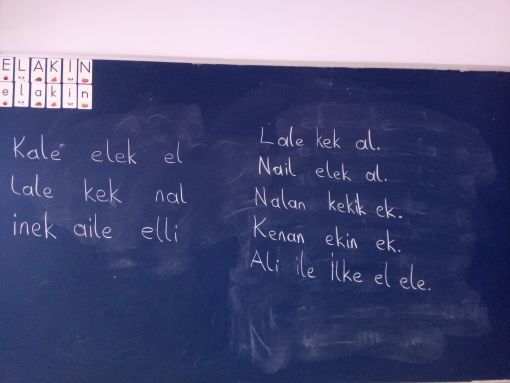 E L A K İ N
e l a k i n
Kale elek el
Lale kek nal
inek aile elli
Lale kek al.
Nail elek al.
Nalan kekik ek.
Kenan ekin ek.
Ali ile İlke el ele.